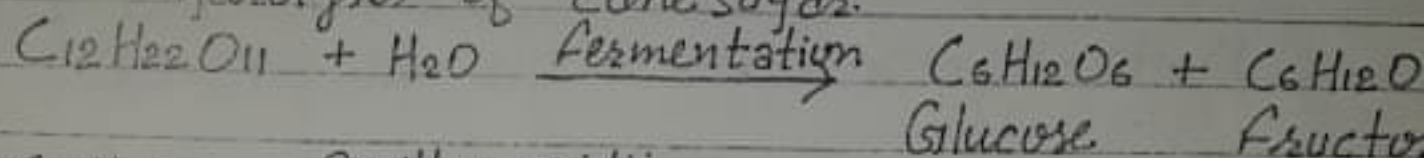 of cane sugar.
C12H22O11 + H2O fermentation C6H12O6 + C6H12O
Glucose fructo